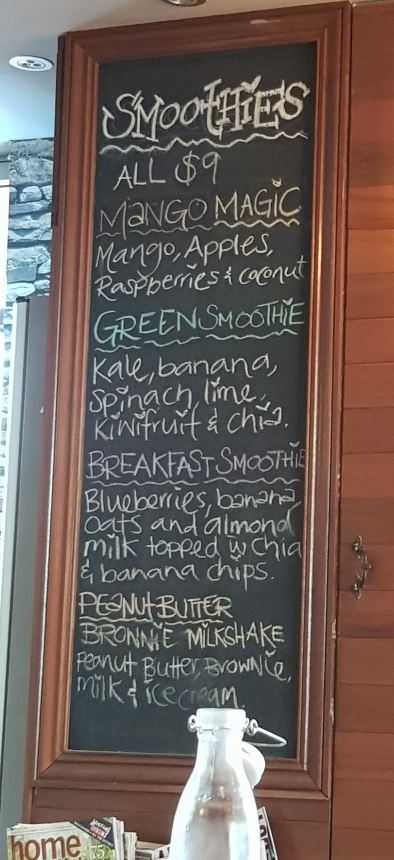 SMOOTHIES
ALL $9
MANGO MAGIC
Mango, Apples,
Raspberries & coconut
GREEN SMOOTHIE
Kale, banana,
Spinach, lime,
Kiwifruit & chia.
BREAKFAST SMOOTHIE
Blueberries, banana
oats and almond
milk topped w chia
& banana chips.
PEANUT BUTTER
BROWNIE MILKSHAKE
Peanut Butter, Brownie,
milk & icecream
home
75